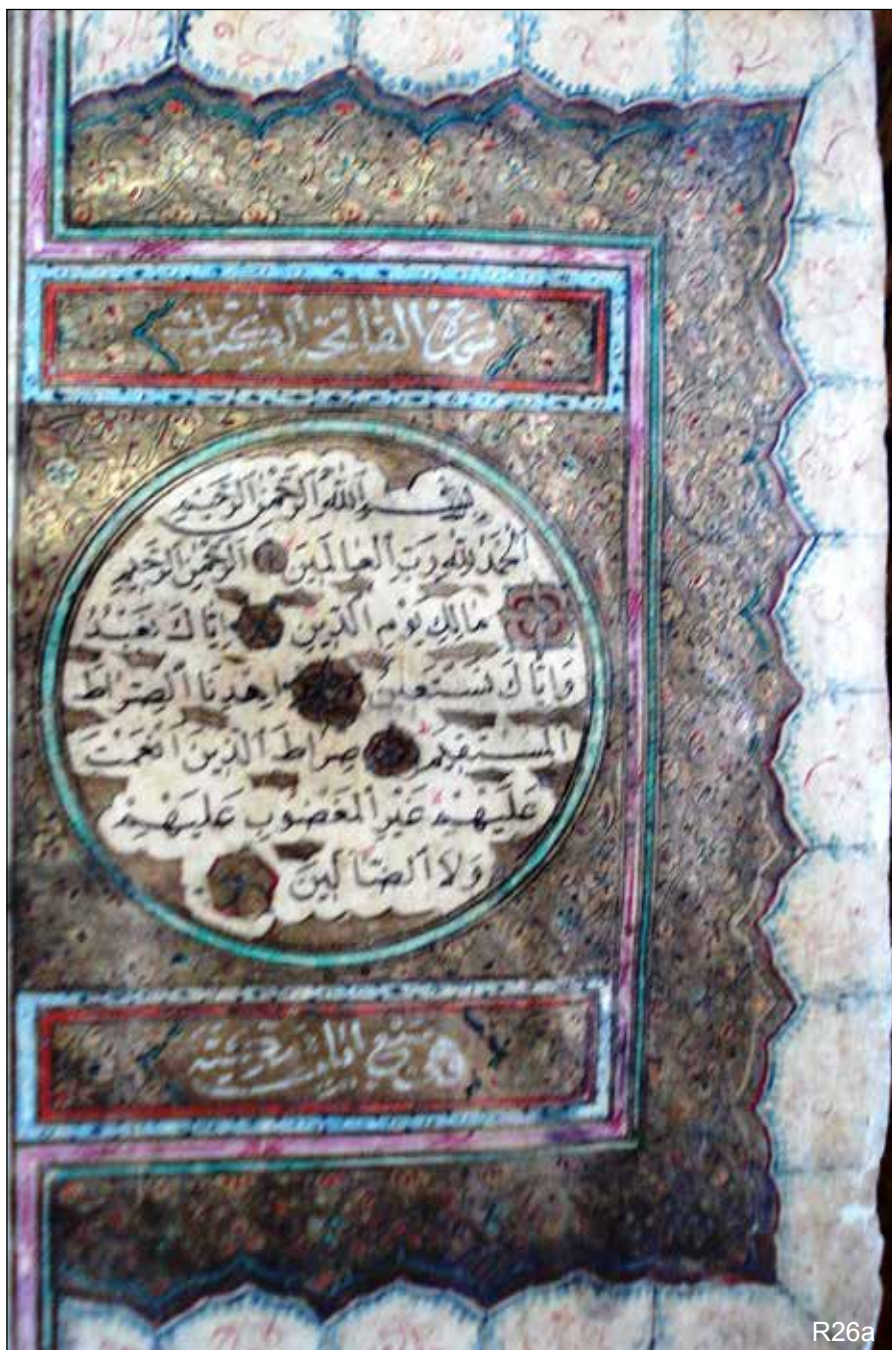 سورة الفاتحة الكتاب
بِسْمِ اللهِ الرَّحْمٰنِ الرَّحِيمِ
اَلْحَمْدُ لِلّٰهِ رَبِّ الْعَالَمِينَ الرَّحْمٰنِ الرَّحِيمِ
مَالِكِ يَوْمِ الدِّينِ اِيَّاكَ نَعْبُدُ
وَاِيَّاكَ نَسْتَعِينُ اِهْدِنَا الصِّرَاطَ
الْمُسْتَقِيمَ صِرَاطَ الَّذِينَ اَنْعَمْتَ
عَلَيْهِمْ غَيْرِ الْمَغْضُوبِ عَلَيْهِمْ
وَلَا الضَّالِّينَ
سبع ايات
R26a